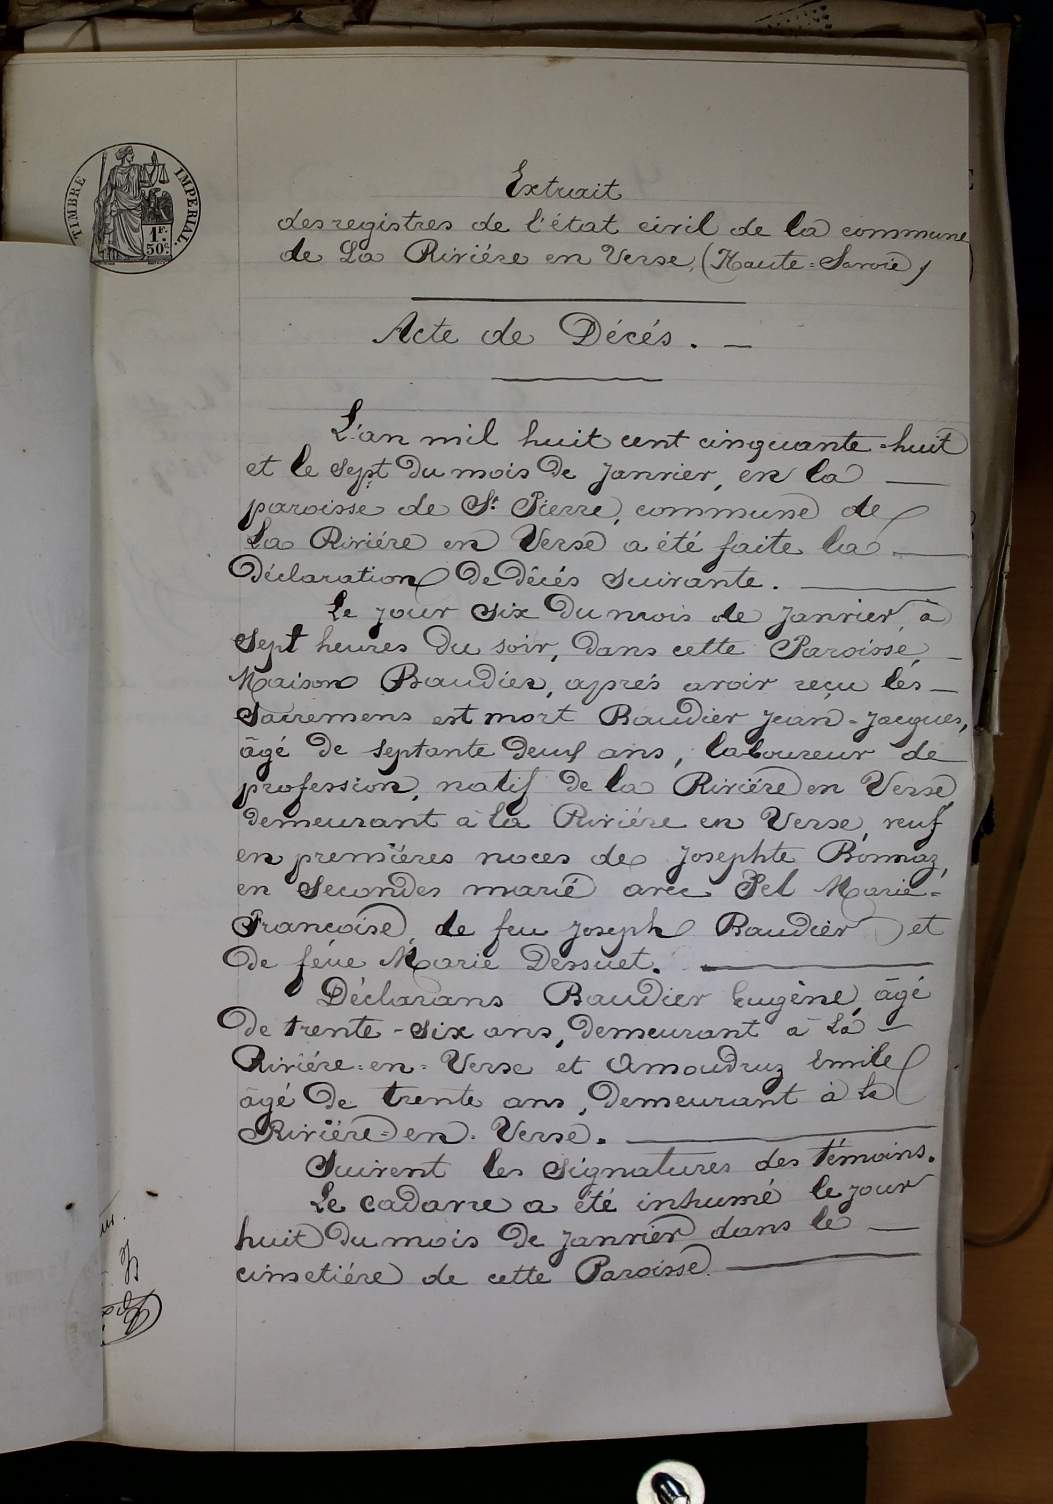 TIMBRE IMPERIAL.
1F.
50c.
Extrait
des registres de l'état civil de la commune
de La Riviére en Verse, (Haute=Savoie)
Acte de Décés. —
L'an mil huit cent cinquante=huit
et le sept du mois de Janvier, en la —
paroisse de St. Pierre, commune de
La Riviére en Verse a été faite la —
Déclaration De décés suivante. —
Le jour six Du mois de Janvier, à
sept heures Du soir, Dans cette Paroisse, —
Maison Baudier, aprés avoir reçu les —
Sacremens est mort Baudier Jean-Jacques,
âgé De septante deux ans, laboureur de
profession, natif De la Riviére en Verse,
demeurant à la Riviére en Verse, veuf
en premiéres noces de Josephte Bonnaz,
en Secondes marié avec Pel Marie=
Françoise, de feu Joseph Baudier et
De féue Marie Dessuet. —
Déclarans Baudier Eugène, âgé
De trente-six ans, demeurant à La —
Riviére=en=Verse et Amoudruz Emile
âgé De trente ans, Demeurant à la
Riviére=en=Verse. —
Suivent les signatures des témoins.
Le cadavre a été inhumé le jour
huit Du mois De Janvier dans le —
cimetiére de cette Paroisse. —